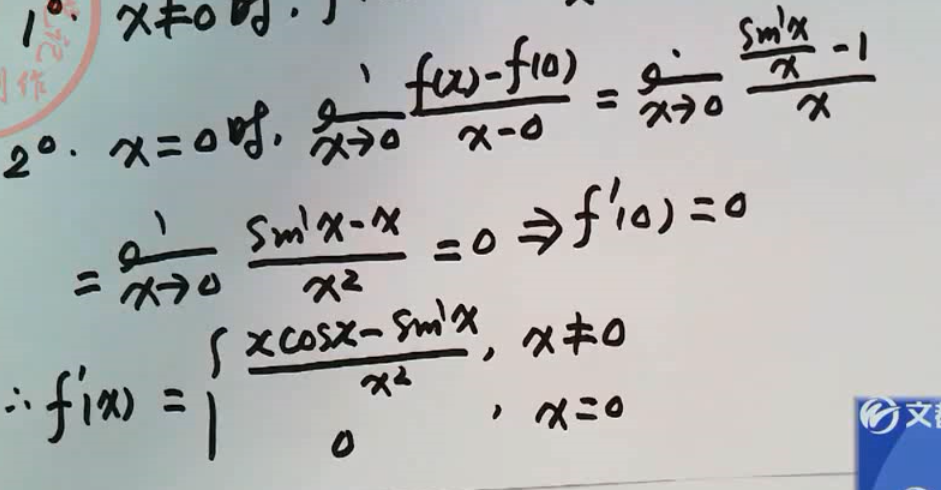 1°. x≠0时. f
2°. x=0时, lim x→0 f(x)-f(0) / x-0 = lim x→0 (sin x / x - 1) / x
= lim x→0 sin x - x / x² = 0 ⇒ f'(0) = 0
∴ f'(x) = { x cos x - sin x / x², x≠0
0 , x=0
作
文都